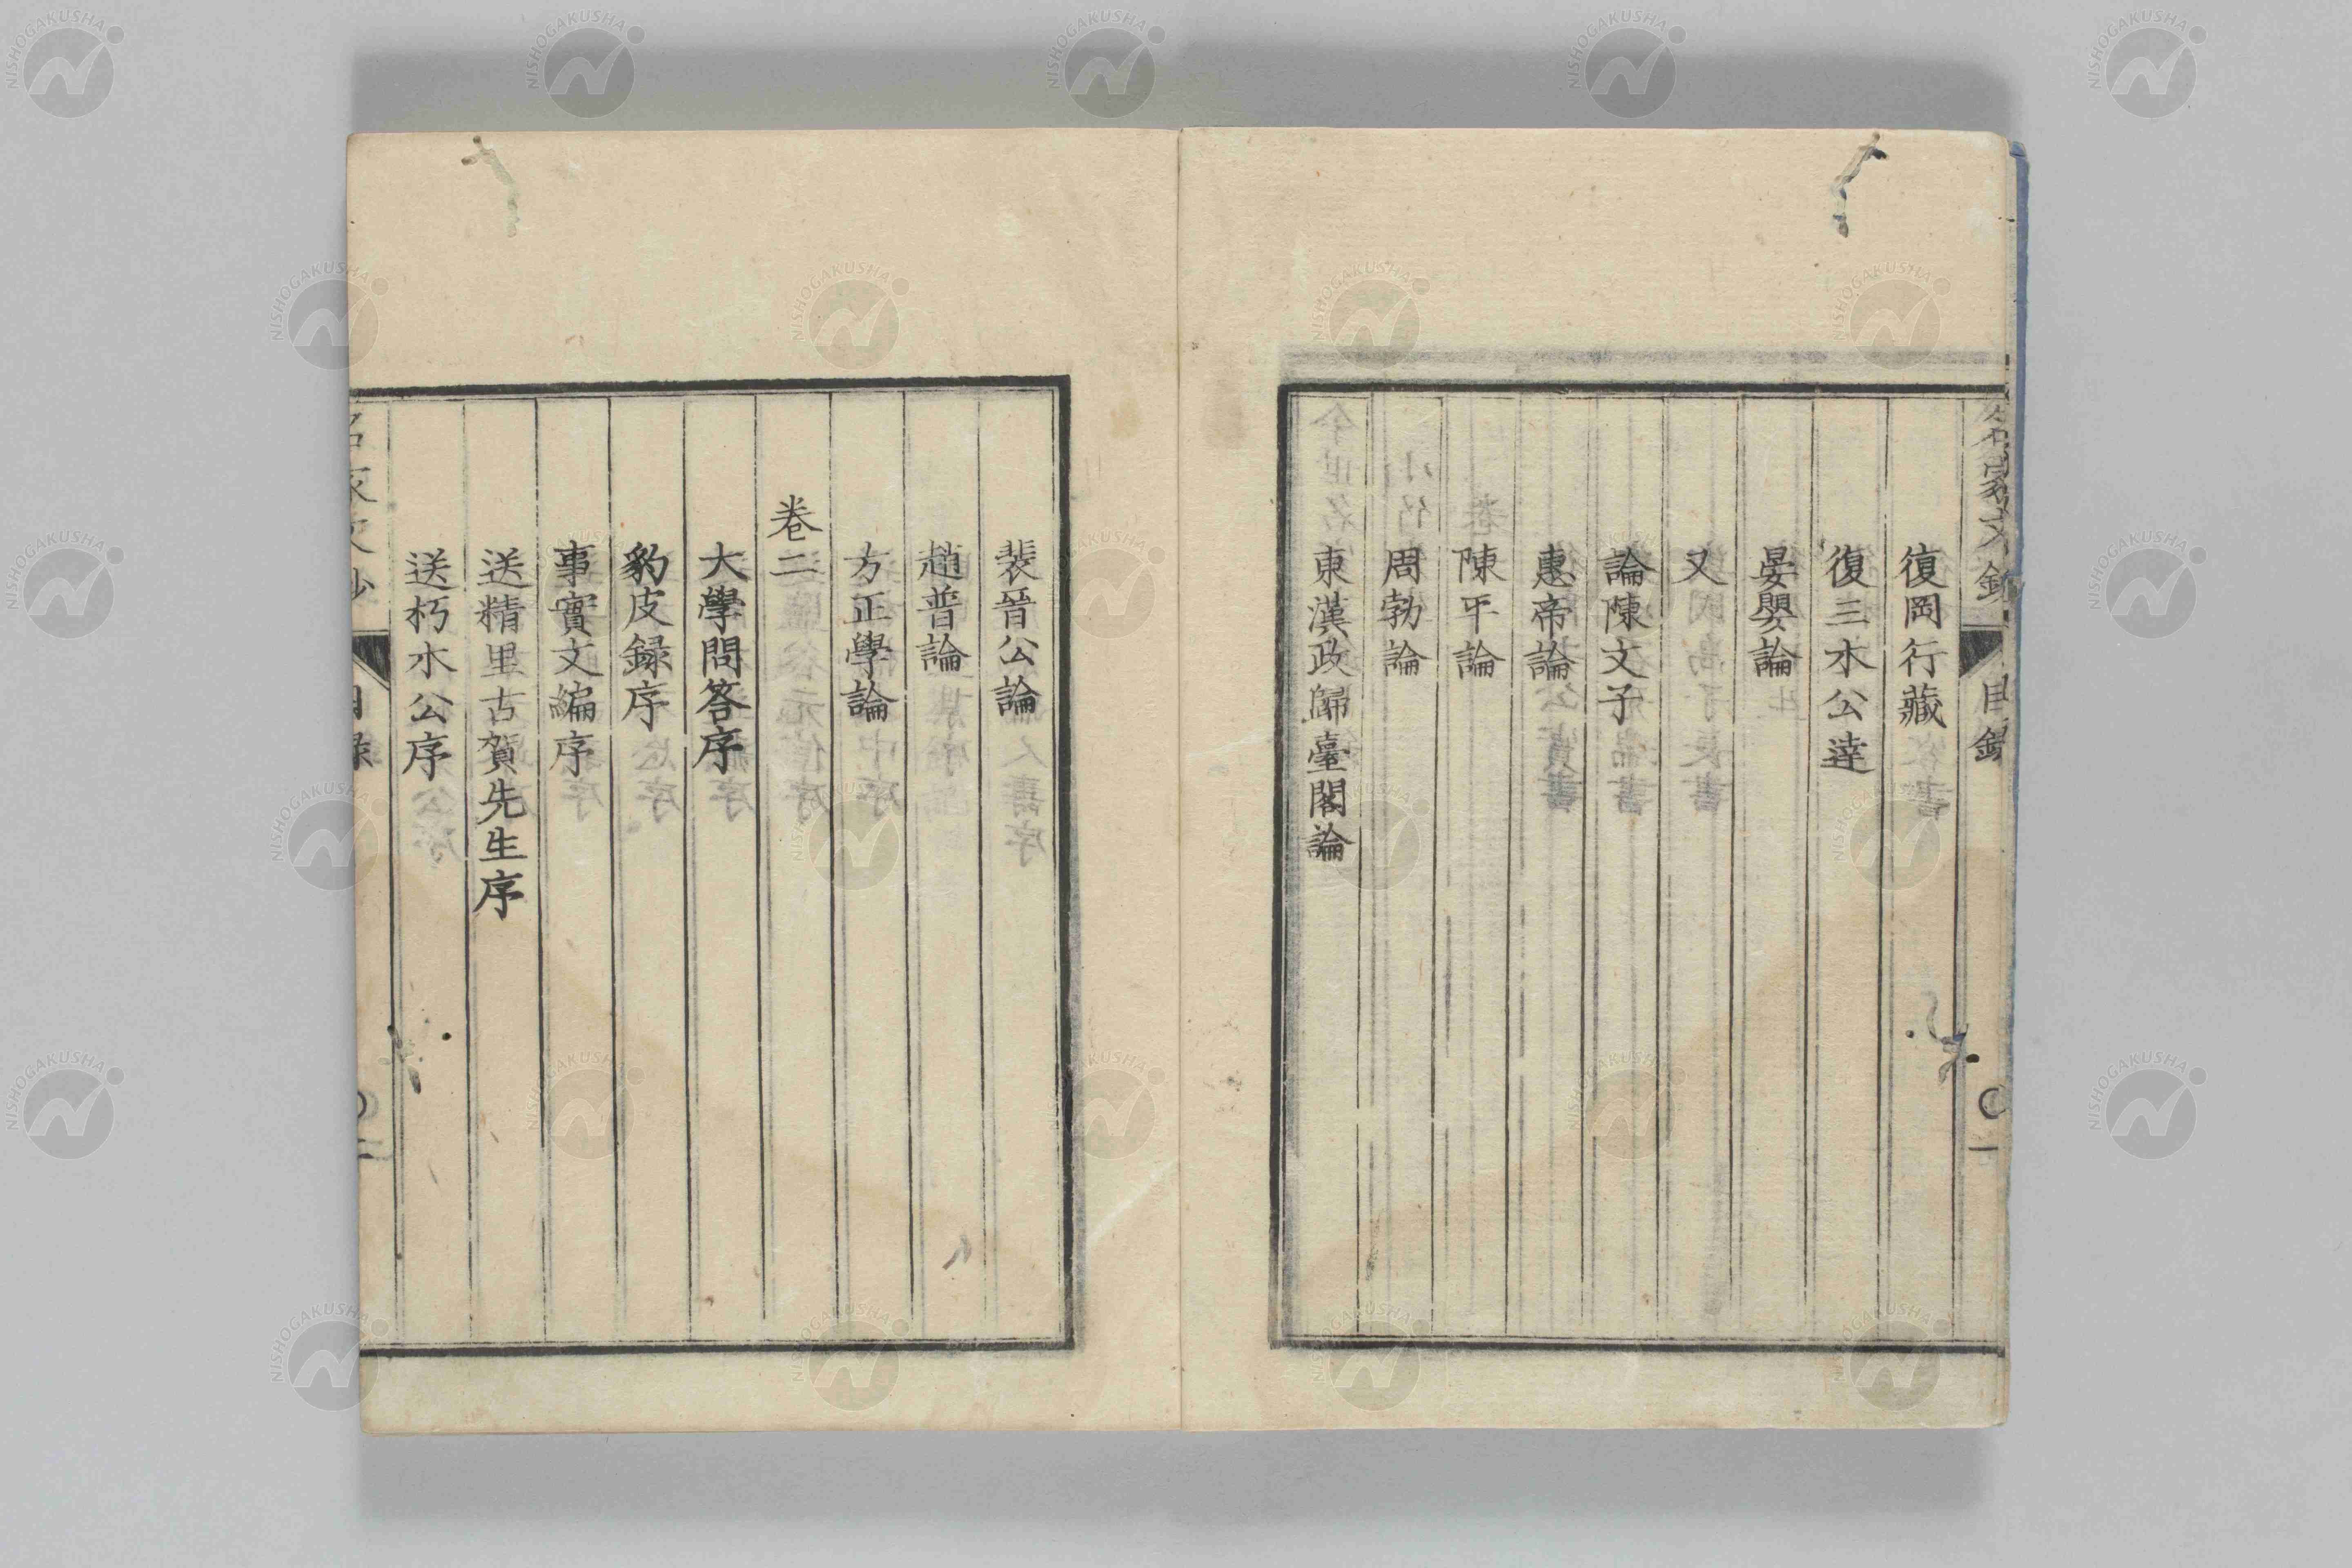 名家文鈔 目錄 〇一
復岡行藏
復三木公逹
晏嬰論
又
論陳文子
惠帝論
陳平論
周勃論
東漢政歸臺閣論
裴晉公論
趙普論
方正學論
卷二
大學問答序
豹皮録序
事實文編序
送精里古賀先生序
送朽木公序